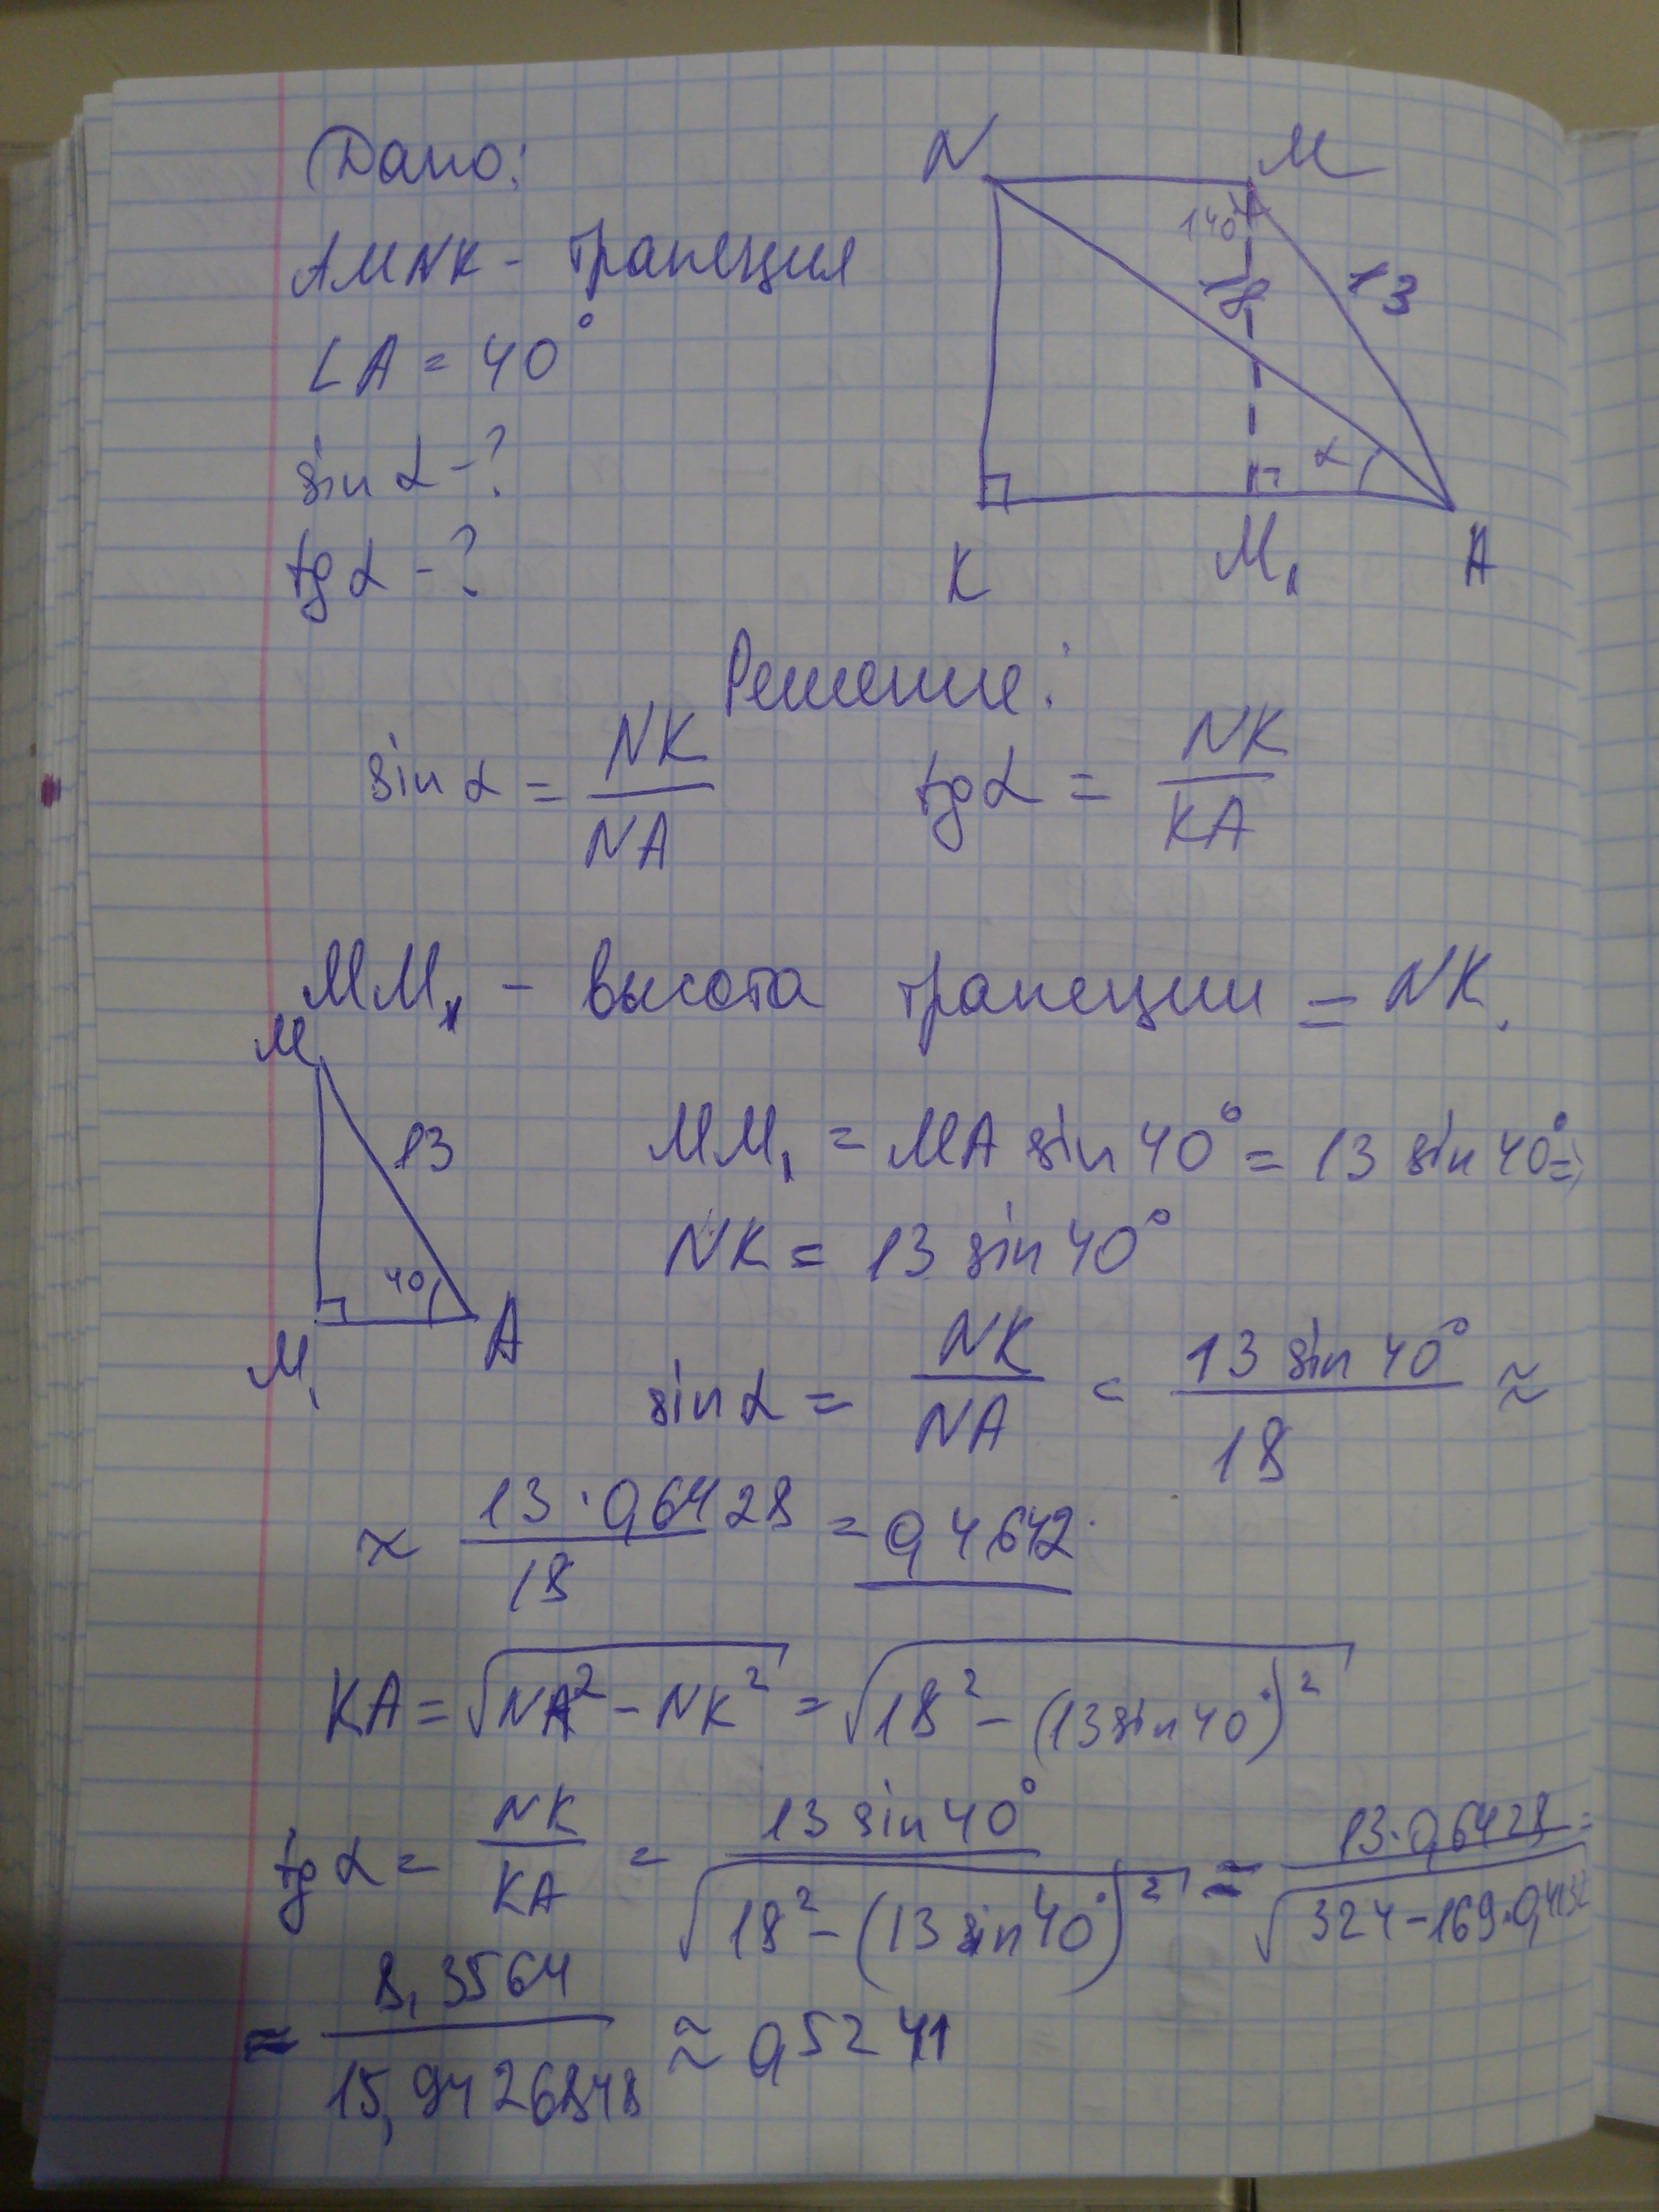 Дано:
AMNK - трапеция
∠A = 40°
sin α - ?
tg α - ?
N M
140°
18 13
α
K M₁ A
Решение:
sin α = NK/NA tg α = NK/KA
MM₁ - высота трапеции = NK.
M
13
40
M₁ A
MM₁ = MA sin 40° = 13 sin 40° =>
NK = 13 sin 40°
sin α = NK/NA = 13 sin 40°/18 ≈
≈ 13 · 0,6428/18 = 0,4642.
KA = √(NA² - NK²) = √(18² - (13 sin 40°)²)
tg α = NK/KA = 13 sin 40°/√(18² - (13 sin 40°)²) = 13·0,6428/√(324 - 169·0,4132) =
= 8,3564/15,9426848 ≈ 0,5241